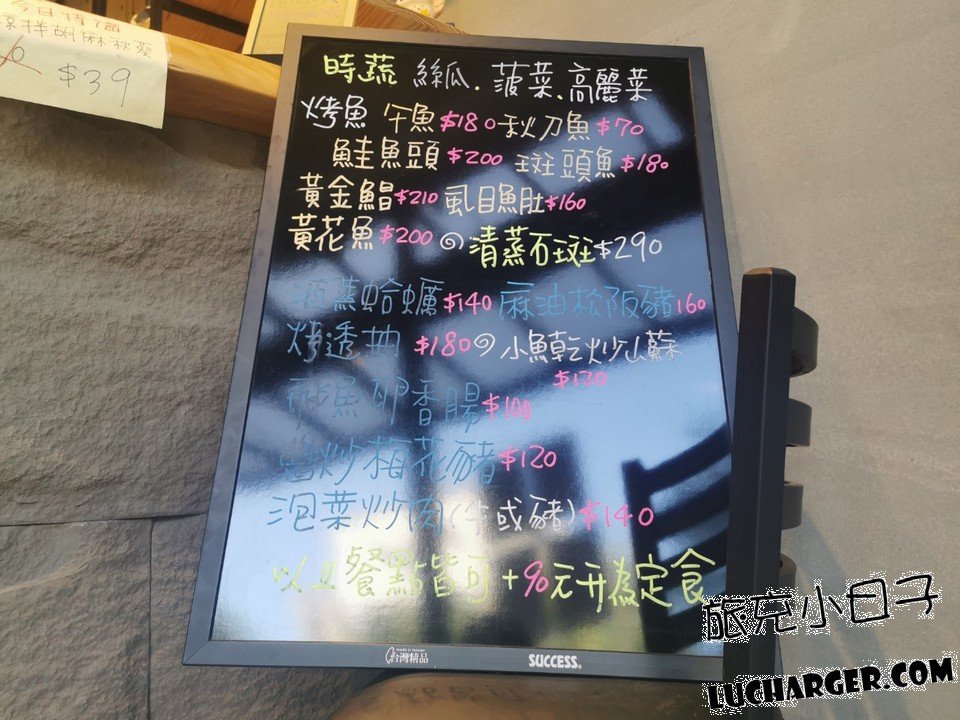 今日特價
涼拌胡麻秋葵
$39
時蔬 絲瓜.菠菜.高麗菜
烤魚 午魚$180 秋刀魚$70
鮭魚頭$200 斑頭魚$180
黃金鯧$210 虱目魚肚$160
黃花魚$200 清蒸石斑$290
酒蒸蛤蠣$140 麻油松阪豬160
烤透抽 $180 小魚乾炒山蘇
$130
飛魚卵香腸$100
炒梅花豬$120
泡菜炒肉(牛或豬)$140
以上餐點皆可+90元升為定食
made in taiwan
台灣精品
SUCCESS
旅充小日子
LUCHARGER.COM